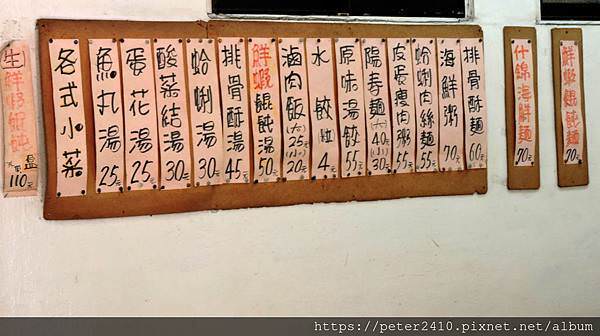 生鮮蝦餛飩
盒110元
各式小菜
魚丸湯 25元
蛋花湯 25元
酸菜結湯 30元
蛤蜊湯 30元
排骨酥湯 45元
鮮蝦餛飩湯 50元
滷肉飯(大)25元(小)20元
水餃 粒 4元
原味湯餃 55元
陽春麵(大)40元(小)30元
皮蛋瘦肉粥 55元
蛤蜊肉絲麵 55元
海鮮粥 70元
排骨酥麵 60元
什錦海鮮麵 70元
鮮蝦餛飩麵 70元
https://peter2410.pixnet.net/album